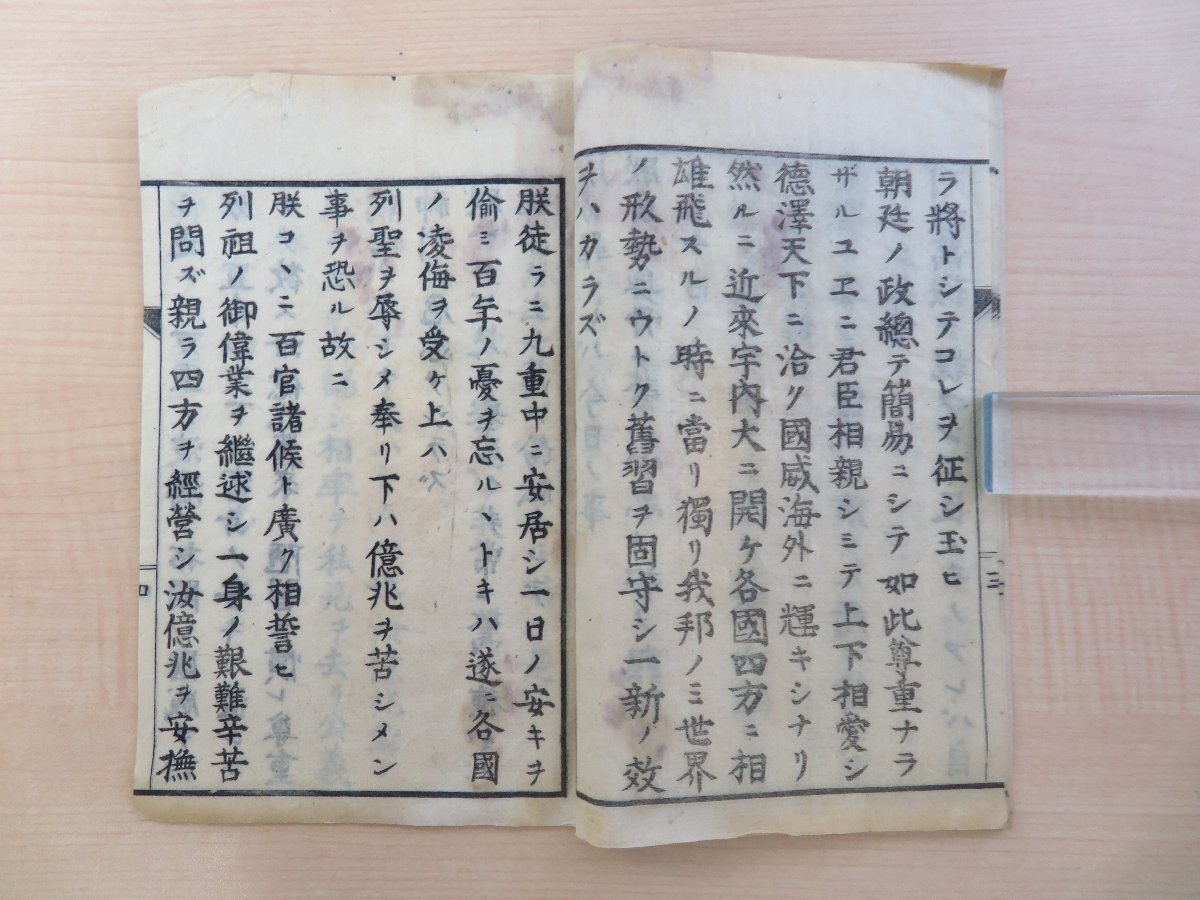 ラ將トシテコレヲ征シ玉ヒ
朝廷ノ政總テ簡易ニシテ如此尊重ナラ
ザルユヱニ君臣相親シミテ上下相愛シ
德澤天下ニ洽ク國威海外ニ輝キシナリ
然ルニ近來宇內大ニ開ケ各國四方ニ相
雄飛スルノ時ニ當リ獨リ我邦ノミ世界
ノ形勢ニウトク舊習ヲ固守シ一新ノ效
ヲハカラズ
三
朕徒ラニ九重中ニ安居シ一日ノ安キヲ
偷ミ百年ノ憂ヲ忘ルヽトキハ遂ニ各國
ノ凌侮ヲ受ケ上ハ
列聖ヲ辱シメ奉リ下ハ億兆ヲ苦シメン
事ヲ恐ル故ニ
朕コヽニ百官諸候ト廣ク相誓ヒ
列祖ノ御偉業ヲ繼述シ一身ノ艱難辛苦
ヲ問ズ親ラ四方ヲ經營シ汝億兆ヲ安撫
四